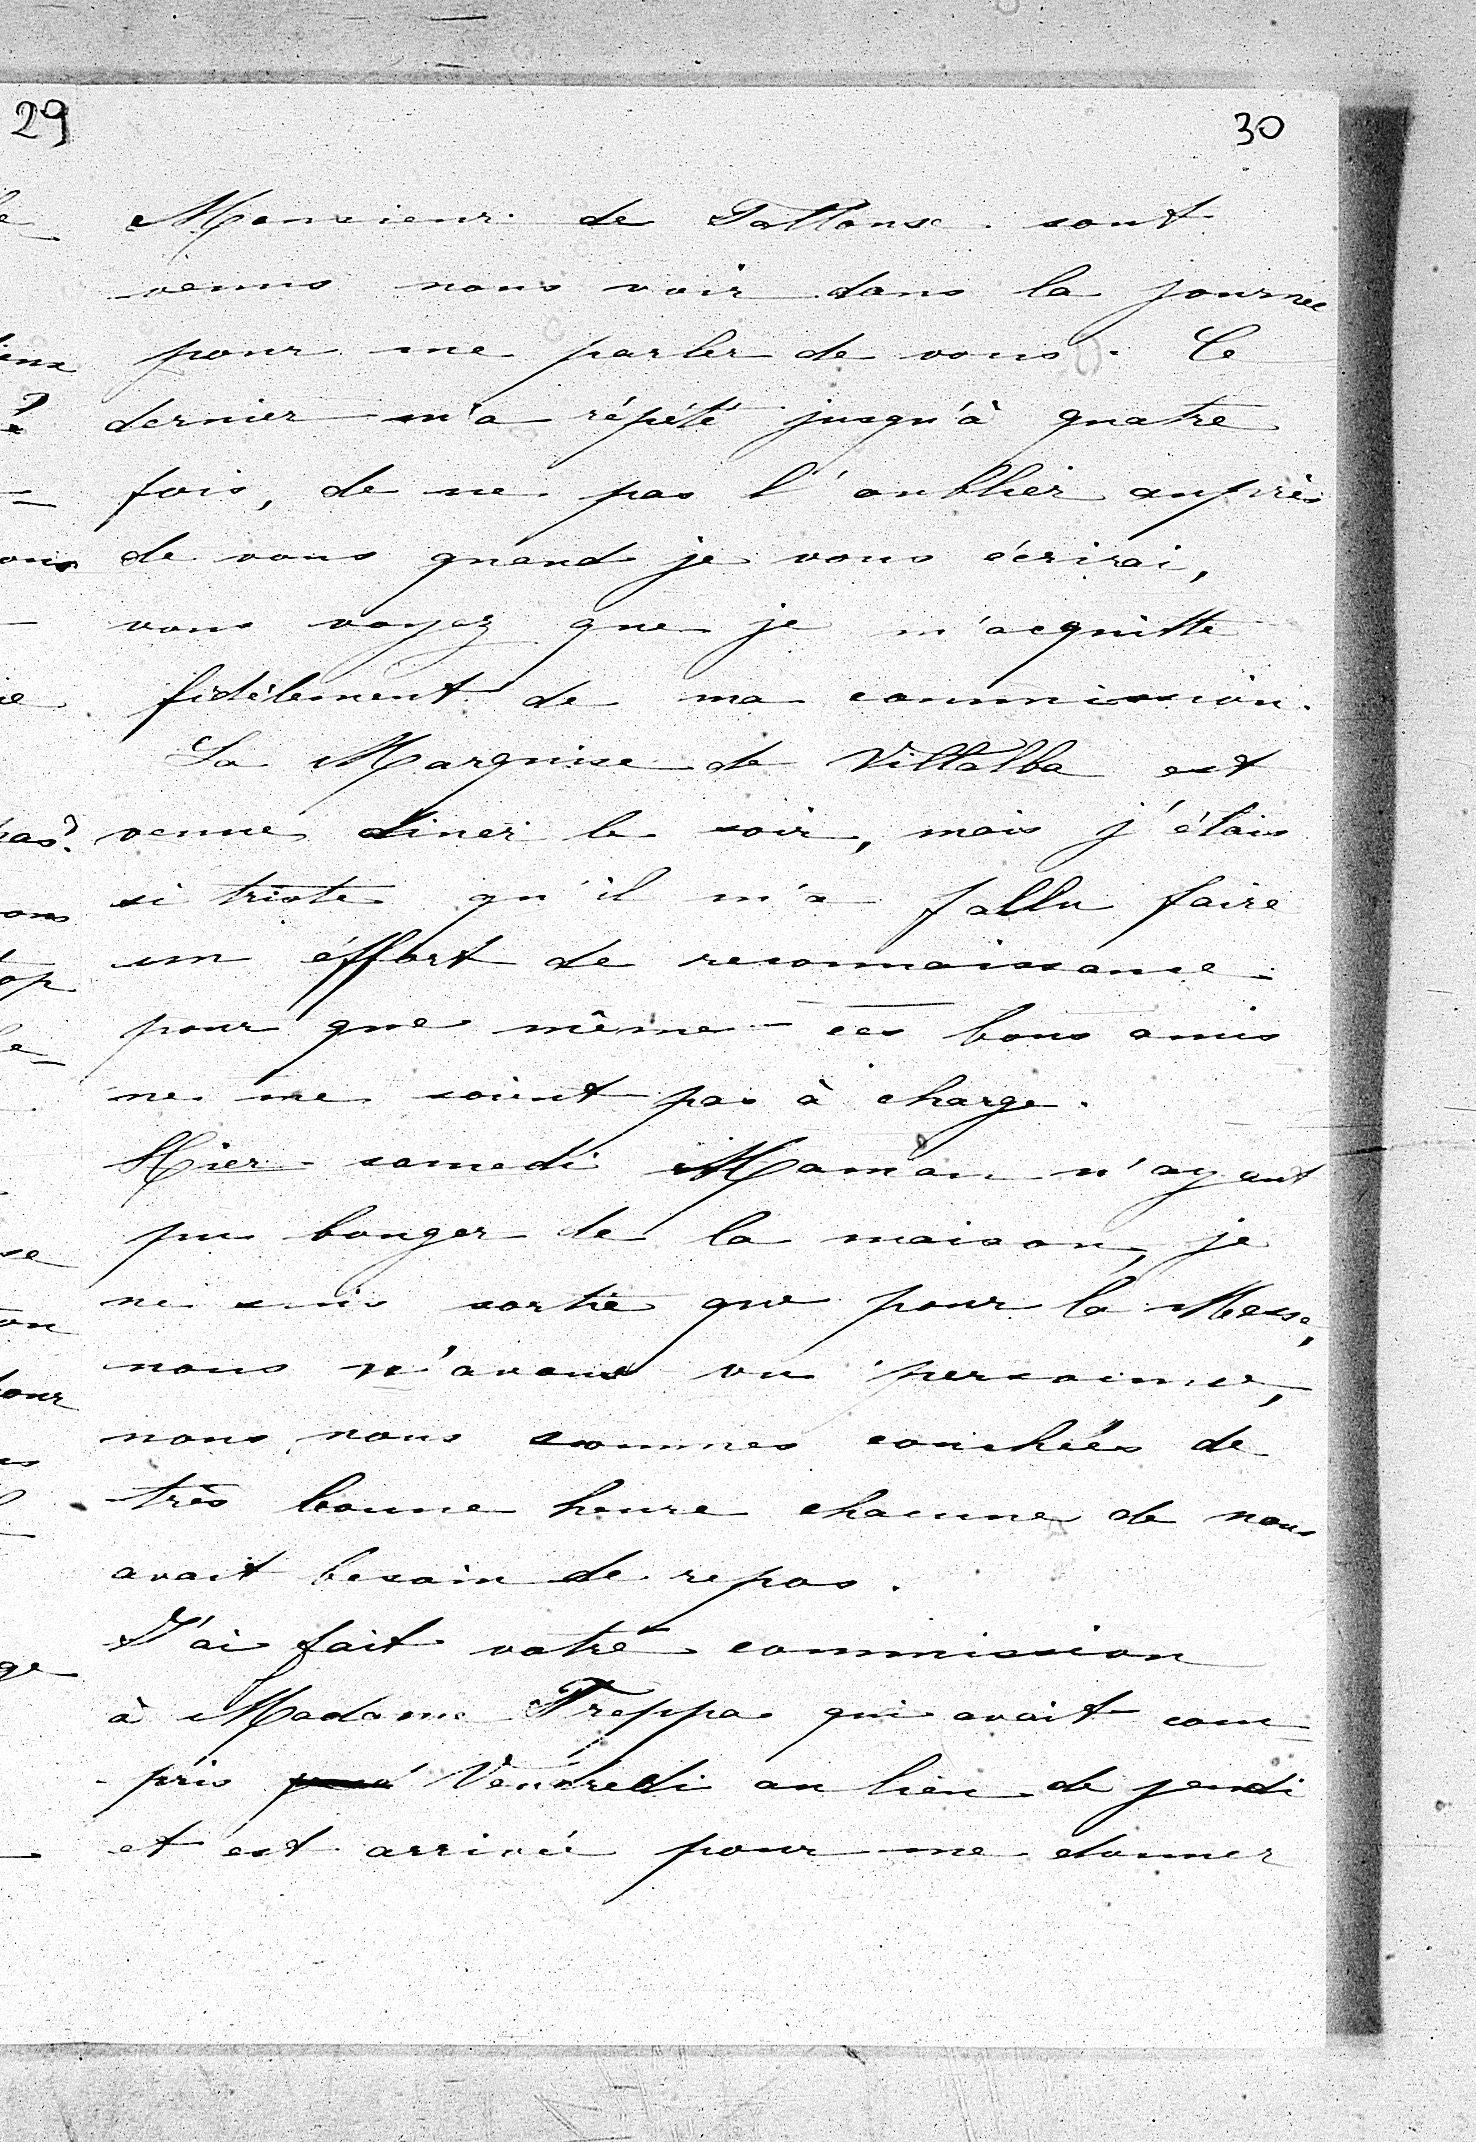 29
30
Monsieur de sont
venus nous voir dans la journée
pour me parler de vous. Ce
dernier m'a répété jusqu'à quatre
fois, de ne pas l'oublier auprès
de vous quand je vous écrirai,
vous voyez que je m'acquitte
fidèlement de ma commission.
La Marquise de Villalba est
venue diner le soir, mais j'étais
si triste qu'il m'a fallu faire
un éffort de reconnaissance
pour que même ces bons amis
ne me soient pas à charge.
Hier samedi Maman n'ayant
pu bouger de la maison, je
ne suis sortie que pour la Messe,
nous n'avons vu personne,
nous nous sommes couchées de
très bonne heure chacune de nous
avait besoin de repos.
J'ai fait votre commission
à Madame Treppa qui avait com-
-pris Vendredi au lieu de jeudi
et est arrivée pour me donner